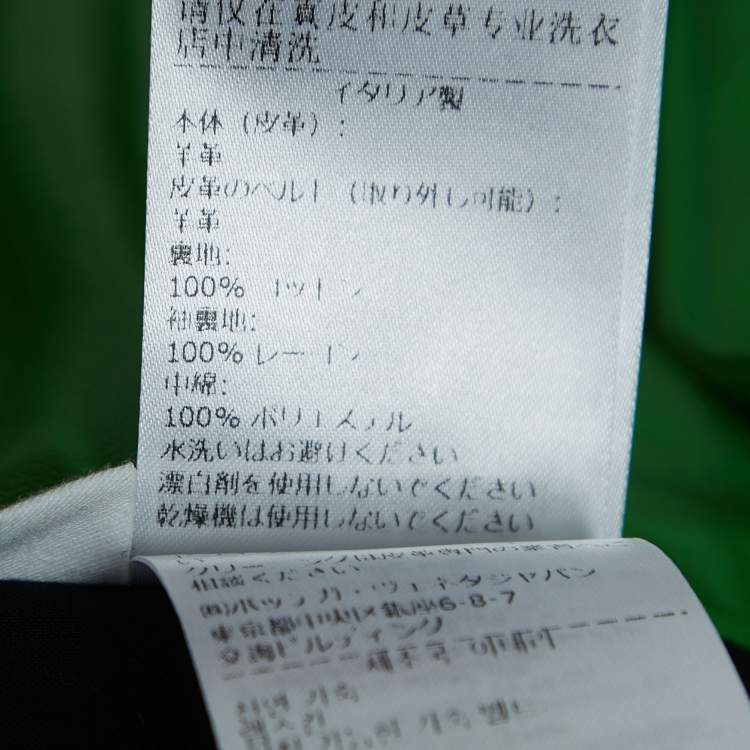 请仅在真皮和皮草专业洗衣
店中清洗
イタリア製
本体（皮革）:
羊革
皮革のベルト（取り外し可能）:
羊革
裏地:
100% コットン
袖裏地:
100% レーヨン
中綿:
100% ポリエステル
水洗いはお避けください
漂白剤を使用しないでください
乾燥機は使用しないでください
クリーニングは皮革専門の業者へご
相談ください
㈱ボッテガ・ヴェネタジャパン
東京都中央区銀座6-8-7
交詢ビルディング
제조국 이태리
가죽
가죽 벨트